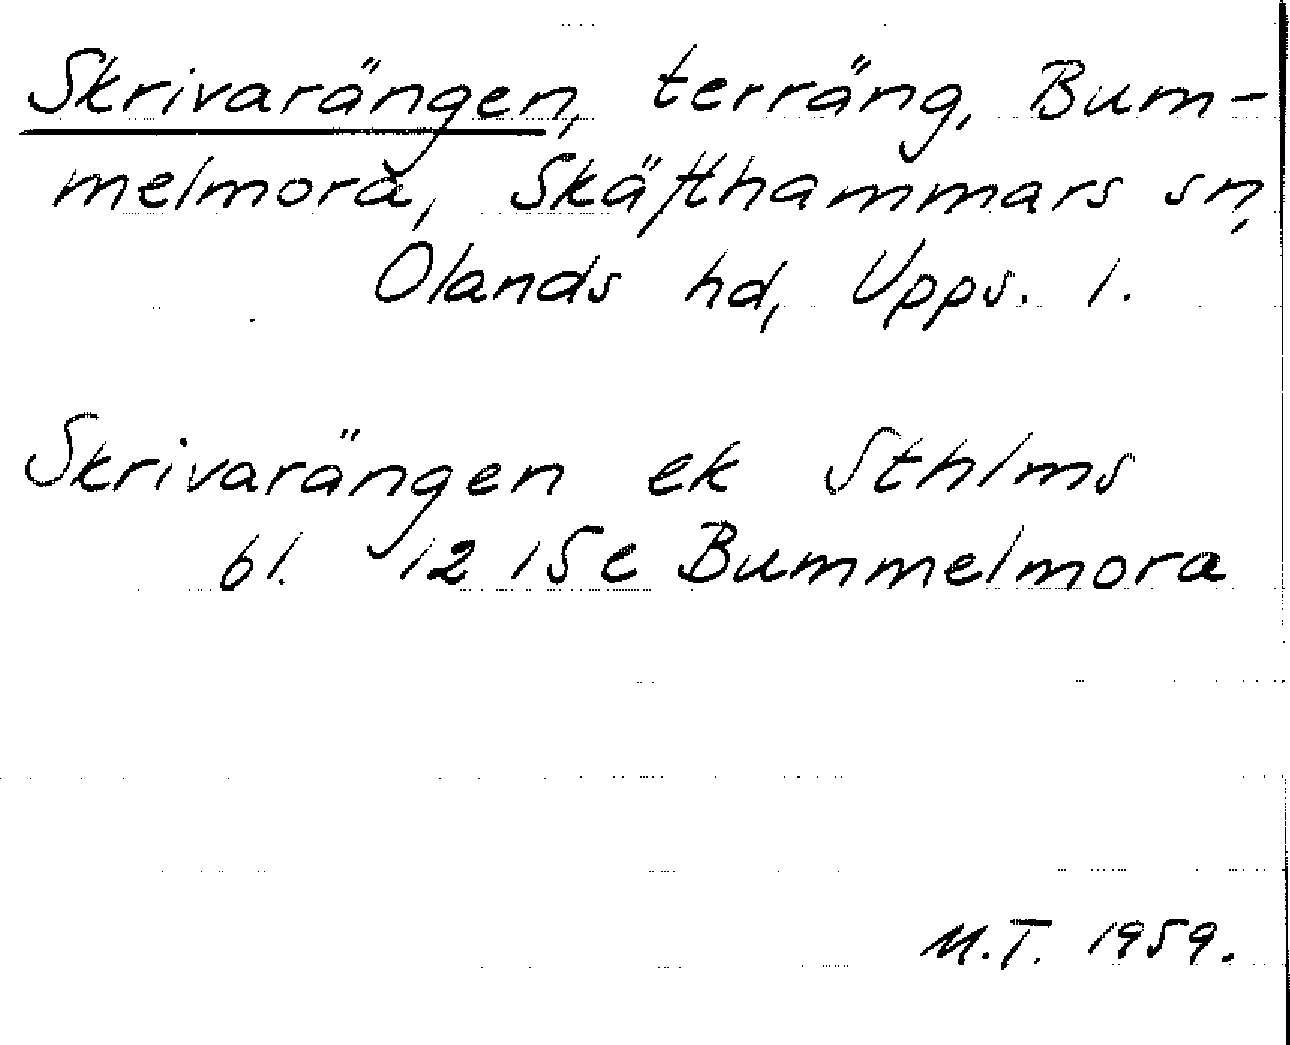 Skrivarängen, terräng, Bum-
melmora, Skäfthammars sn,
Olands hd, Upps. l.
Skrivarängen ek Sthlms
bl. 12 15 c Bummelmora
M.T. 1959.